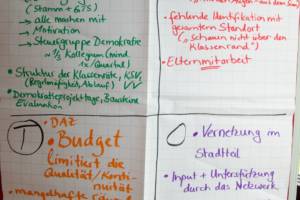 (Stamm + GTS)
→ alle machen mit
→ Motivation
→ Steuergruppe Demokratie
~ 1/3 Kollegium (mind.
1x/Quartal)
• Struktur der Klassenräte, KSV,
(Regelmäßigkeit, Ablauf)
• Demokratieprojekttage, Bausteine
Evaluation
• fehlende Identifikation mit
gesamtem Standort
("schauen nicht über den
Klassenrand")
• Elternmitarbeit
T
• DAZ
• Budget
limitiert die
Qualität/Konti-
nuität
• mangelhafte
O
• Vernetzung im
Stadtteil
• Input + Unterstützung
durch das Netzwerk